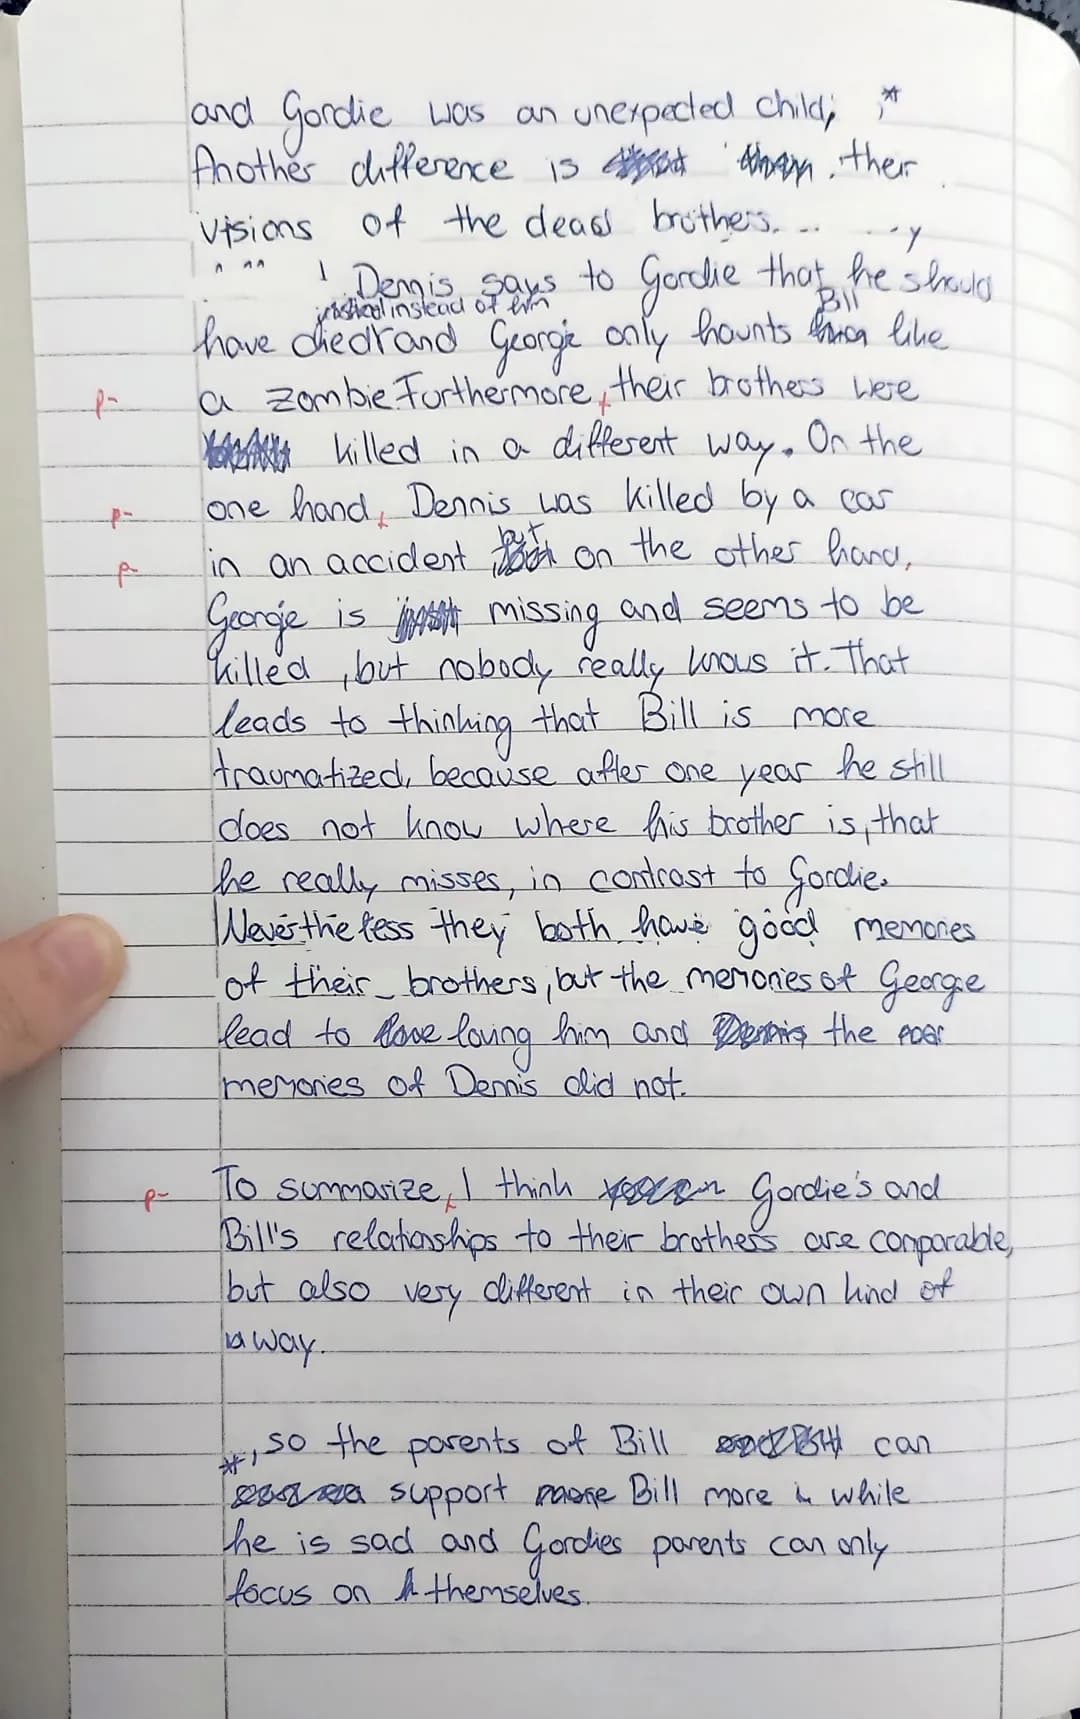 and Gordie was an unexpected child; *
Another difference is their
visions of the dead brothers.
Dennis says to Gordie that he should
instead of him
Bill
have died and George only haunts like
p- a zombie. Furthermore, their brothers were
killed in a different way. On the
p- one hand, Dennis was killed by a car
but
p- in an accident on the other hand,
George is missing and seems to be
killed, but nobody really knows it. That
leads to thinking that Bill is more
traumatized, because after one year he still
does not know where his brother is, that
he really misses, in contrast to Gordie.
Nevertheless they both have good memories
of their brothers, but the memories of George
lead to loving him and the
memories of Dennis did not.
p- To summarize, I think Gordie's and
Bill's relationships to their brothers are comparable,
but also very different in their own kind of
a way.
*, so the parents of Bill can
support Bill more while
he is sad and Gordies parents can only
focus on themselves.